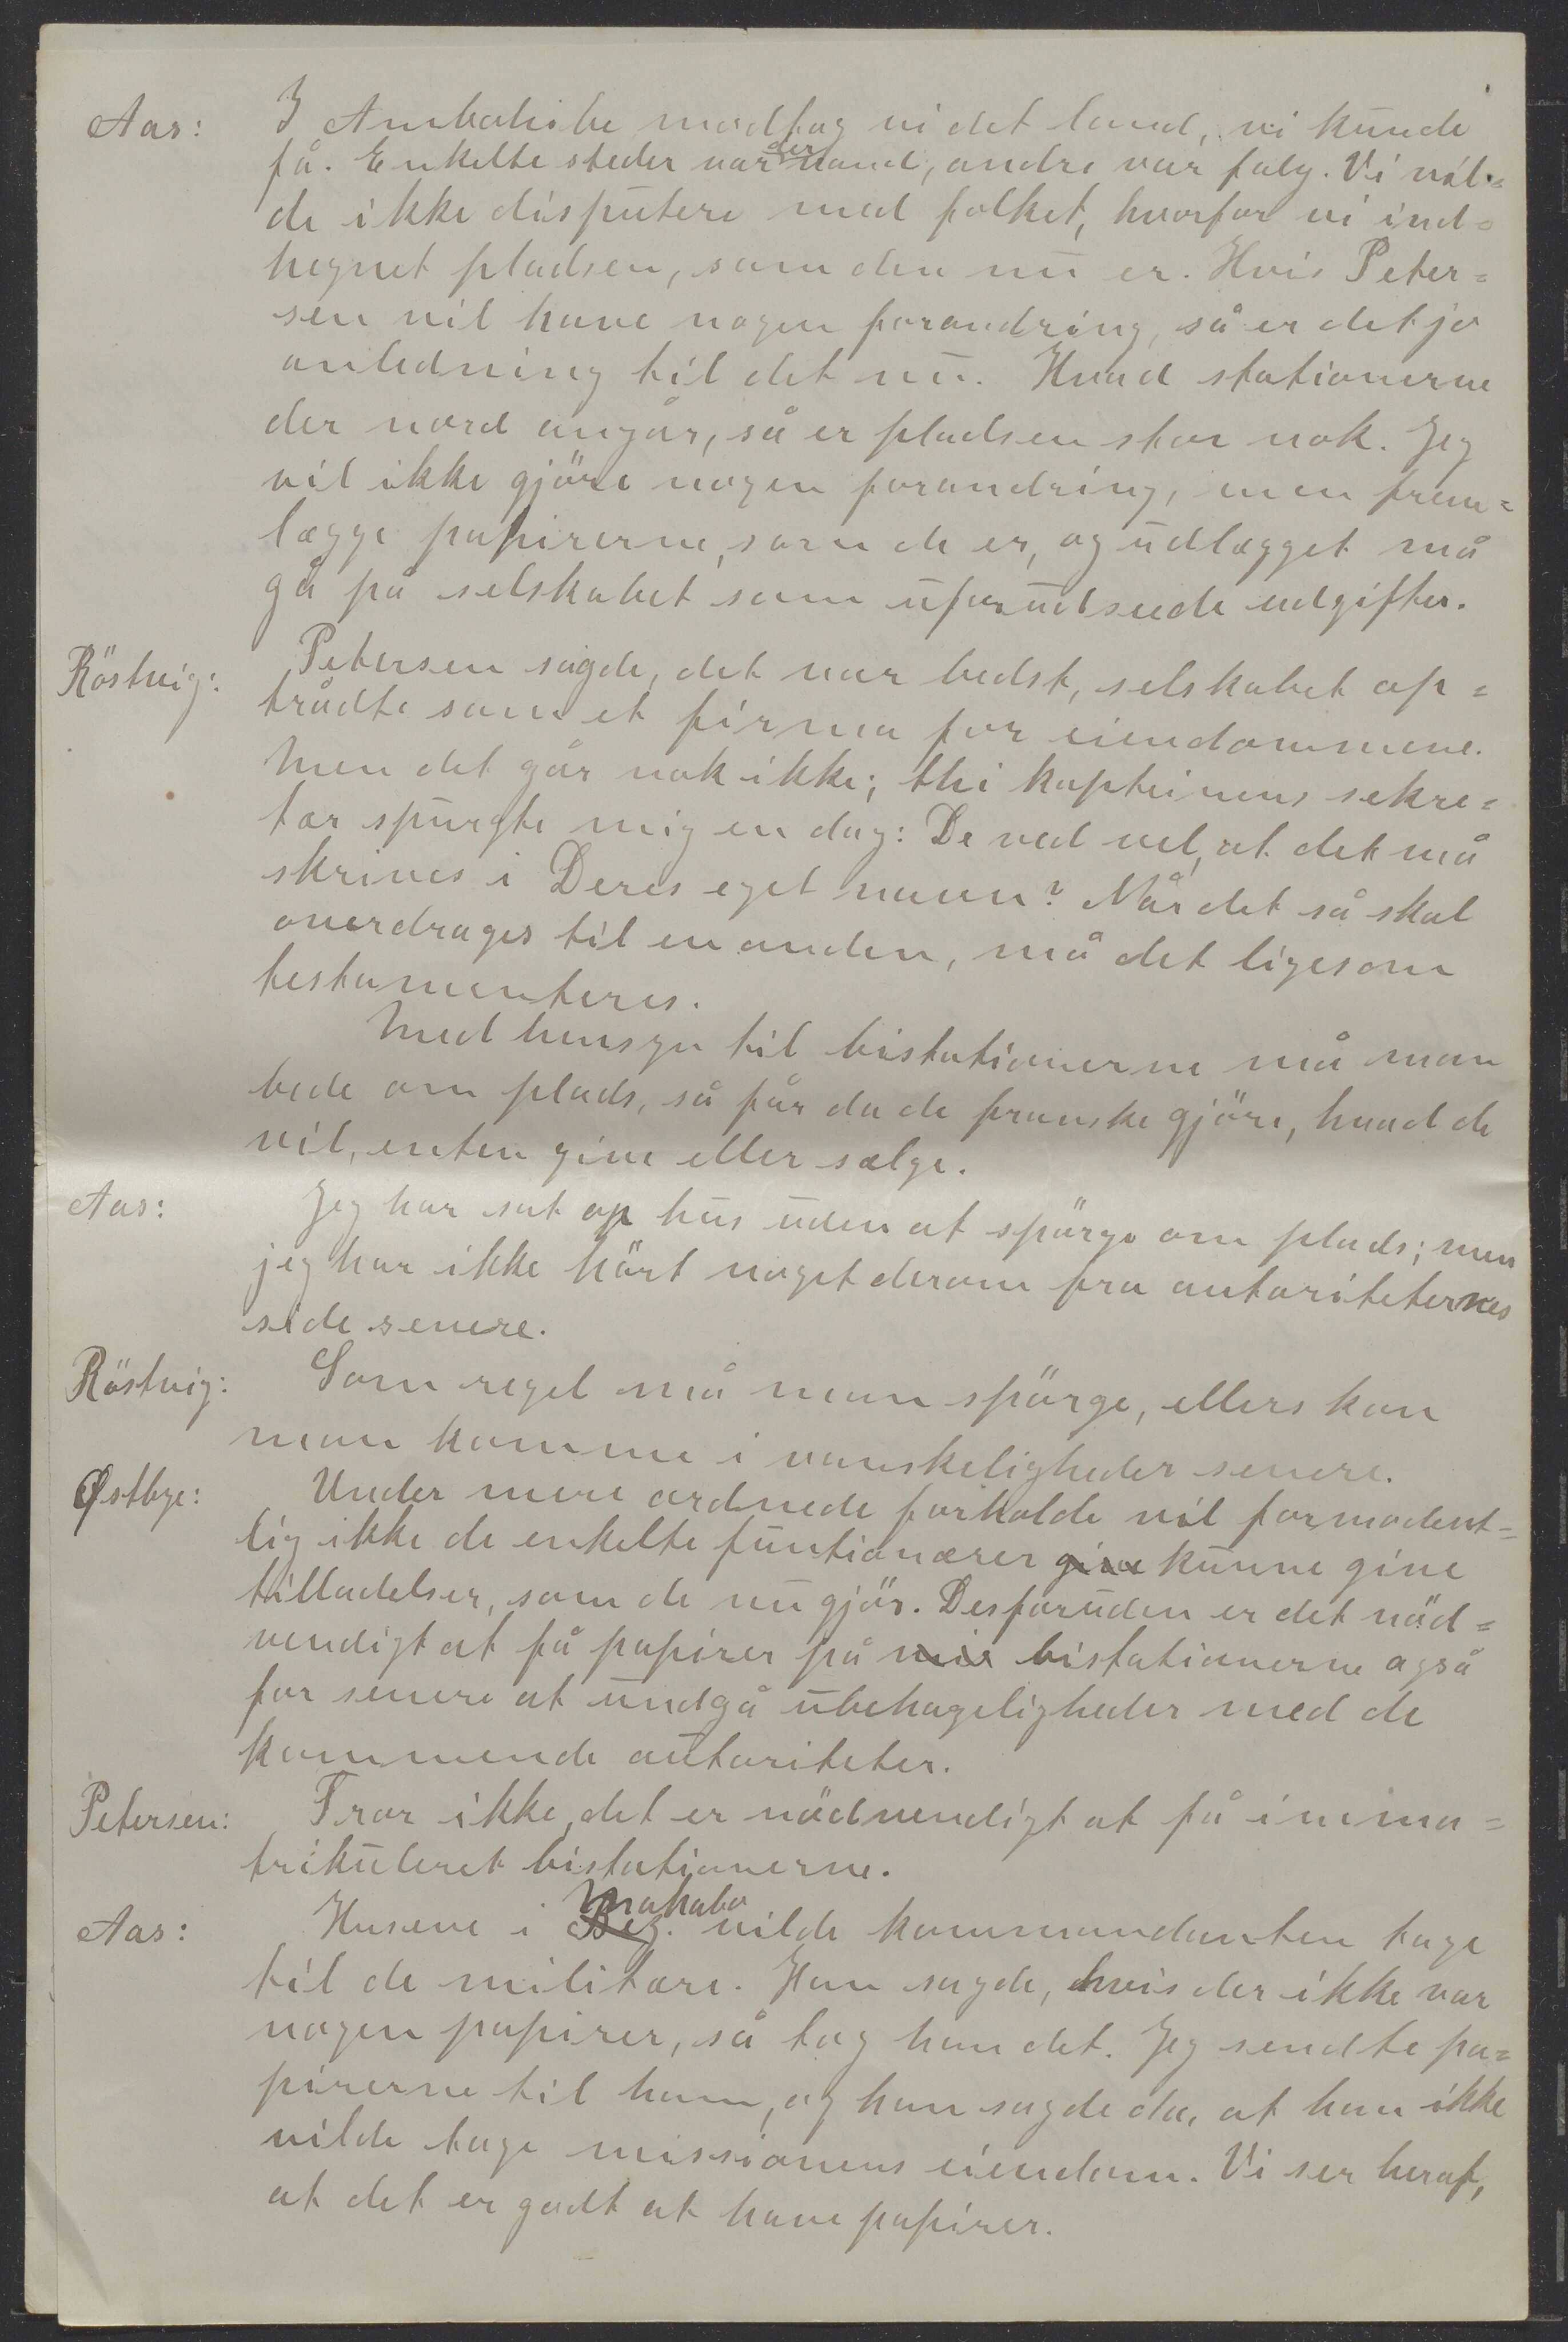 Aas: I Ambohibe modtog vi det land, vi kunde
få. Enkelte steder var der vand, andre var folg. Vi vil=
de ikke disputere med folket, hvorfor vi ind=
hegnet pladsen, som den nu er. Hvis Peter=
sen vil have nogen forandring, så er det jo
anledning til det nu. Hvad stationerne
der nord angår, så er pladsen stor nok. Jeg
vil ikke gjöre nogen forandring, men frem=
lægge papirerne, som de er, og udlægget må
gå på selskabet som uforudseede udgifter.
Röstvig: Petersen sagde, det var bedst, selskabet op=
trådte som et firma for eiendommene.
Men det går nok ikke; thi kapteinens sekre=
tær spurgte mig en dag: De ved vel, at det må
skrives i Deres eget navn? Når det så skal
overdrages til en anden, må det ligesom
testamenteres.
Med hensyn til bistationerne må man
bede om plads, så får da de franske gjöre, hvad de
vil, enten give eller sælge.
Aas: Jeg har sat op hus uden at spörge om plads; men
jeg har ikke hört noget derom fra autoriteternes
side senere.
Röstvig: Som regel må man spörge, ellers kan
man komme i vanskeligheder senere.
Østbye: Under mere ordnede forholde vil formodent=
lig ikke de enkelte funtionærer give kunne give
tilladelser, som de nu gjör. Desforuden er det nöd=
vendigt at få papirer på mis bistationerne også
for senere at undgå ubehageligheder med de
kommende autoriteter.
Petersen: Tror ikke, det er nödvendigt at få imma=
trikuleret bistationerne.
Aas: Husene i Bez. Mahabo vilde kommandanten tage
til de militære. Han sagde, hvis der ikke var
nogen papirer, så tog han det. Jeg sendte pa=
pirerne til ham, og han sagde da, at han ikke
vilde tage missionens eiendom. Vi ser heraf,
at det er godt at have papirer.